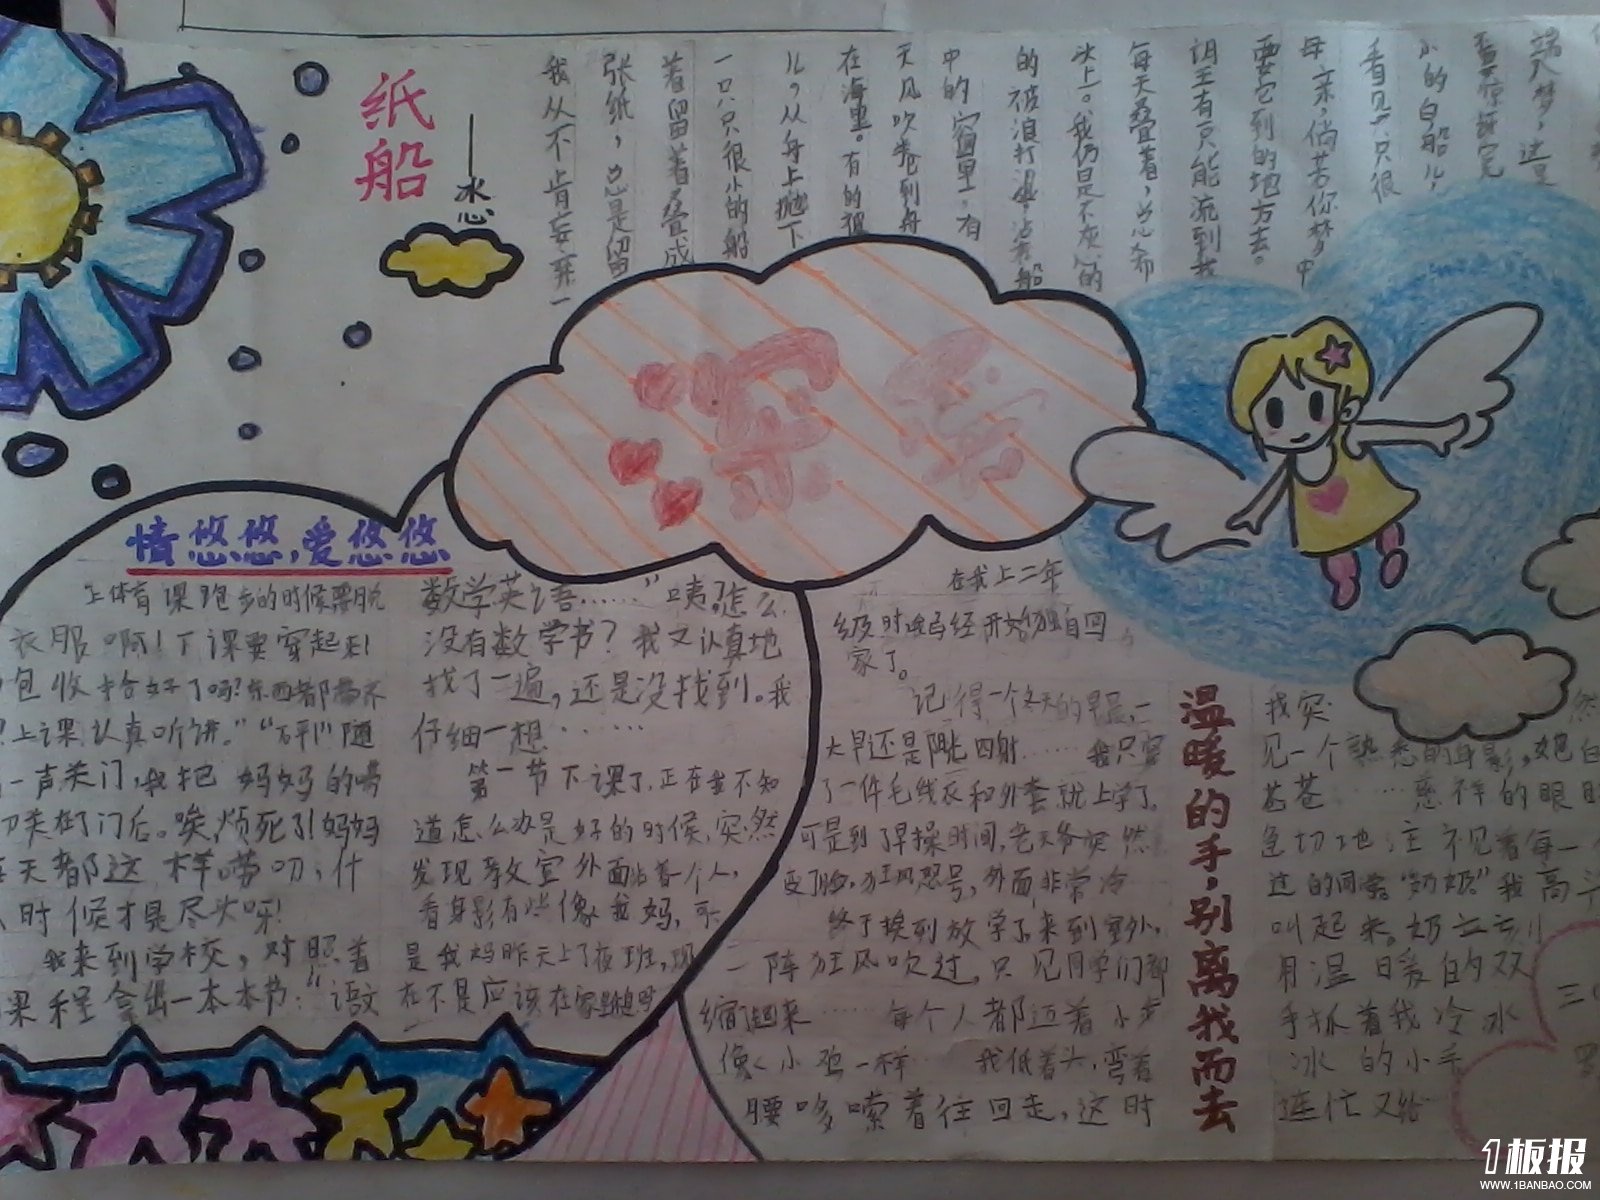 纸船
——冰心
我从不肯妄弃一
张纸，总是留
着留着叠成
一只只很小的船
儿。从舟上抛下
在海里。有的被
天风吹卷到舟
中的窗里。有
的被浪打湿，沾在船
头上。我仍是不灰心的
每天叠着，总希
望有一只能流到我
要它到的地方去。
母亲，倘若你梦中
看见一只很
小的白船儿，
不要惊讶它
端入梦，这是
深爱
情悠悠,爱悠悠
上体育课跑步的时候要脱
衣服啊！下课要穿起来！
包收拾好了吗？东西都带齐
上课认真听讲。”“砰”随
一声关门，我把妈妈的唠
叨关在了门后。唉，烦死了！妈妈
天都这样唠叨，什
时候才是尽头呀！
我来到学校，对照着
课程拿出一本本书：“语文
数学英语……”咦？怎么
没有数学书？我又认真地
找了一遍，还是没找到。我
仔细一想……
第一节下课了，正在我不知
道怎么办是好的时候，突然
发现教室外面站着个人，
看身影有些像我妈，可
是我妈昨天上了夜班，现
在不是应该在家睡觉吗
温暖的手，别离我而去
在我上二年
级时就已经开始独自回
家了。
记得一个冬天的早晨，一
大早还是阳光四射……我只穿
了一件毛线衣和外套就上学了。
可是到了早操时间，老天爷突然
变了脸，狂风怒号，外面非常冷
终于挨到放学了，来到室外，
一阵狂风吹过，只见同学们都
缩了起来……每个人都迈着小步
像小鸡一样 我低着头，弯着
腰哆嗦着往回走，这时
我突然
见一个熟悉的身影，她白
苍苍……慈祥的眼
急切地注视着每一
过的同学“奶奶”我高
叫起来。奶立刻
用温暖的双
手抓着我冷冰
冰的小手
连忙又给
1板报
WWW.1BANBAO.COM